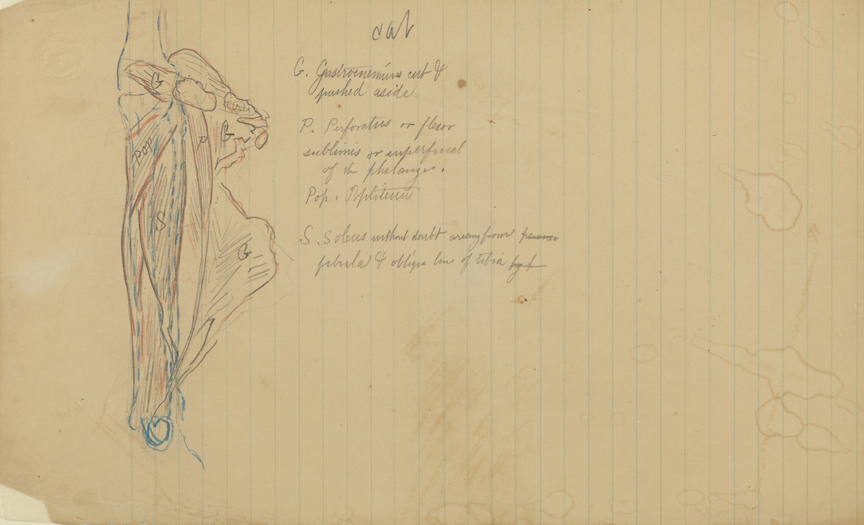 cat
G. Gastrocnemius cut &
pushed aside
P. Perforatus or flexor
sublimis or superficial
of the phalanges.
Pop. Popliteus
S. Soleus without doubt arising from
fibula & oblique line of tibia
G
G
P
Pop
S
G